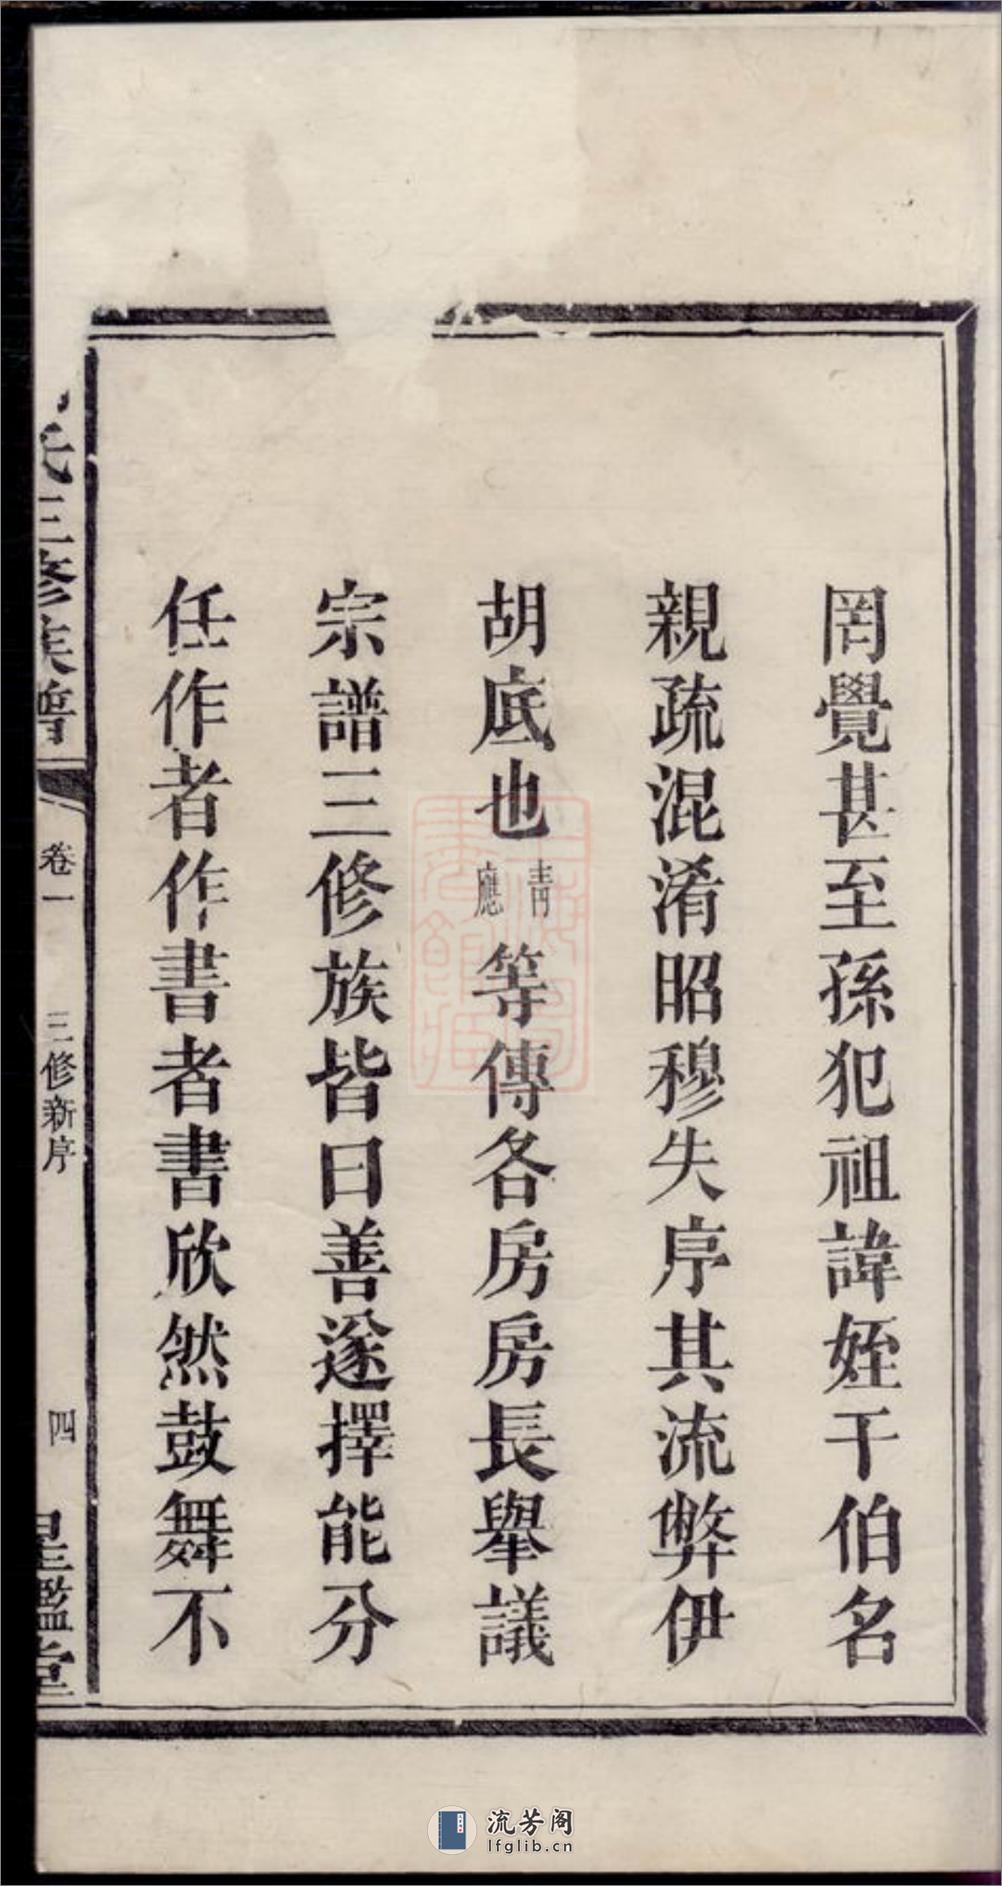 罔覺甚至孫犯祖諱姪干伯名
親疏混淆昭穆失序其流弊伊
胡底也青應等傳各房房長舉議
宗譜三修族皆曰善遂擇能分
任作者作書者書欣然鼓舞不
氏三修族譜
卷一
三修新序
四
星鑑堂
流芳阁
lfglib.cn